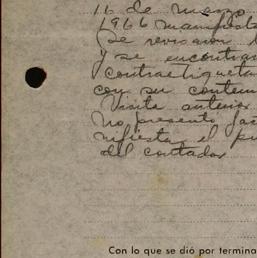 16 de marzo
1966 manifiesta
Se revisaron l
y se encontrar
contraetiqueta
con su conteni
Visita anterior
No presentó fac
nifiesta el pr
del contador
Con lo que se dió por termina